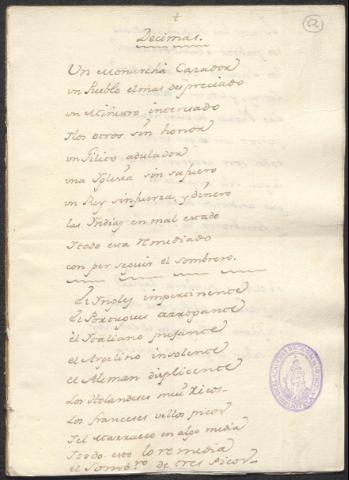 Decimas.
Un Monarcha Cazador
un Pueblo el mas despreciado
un Ministro interesado
I los otros sin honor
un Silico adulador
una Iglesia sin
un Rey sin fuerza, y dinero
las Indias en mal estado
I todo esta remediado
con perseguir el sombrero.
El Ingles impertinente
el Portugues arrogante
el Italiano pujante
el Argelino insolente
el Aleman displicente
Los Holandeses mui ricos
Los franceses
I el Marrueco en algo media
I todo esto lo remedia
el Sombro. de tres Picos